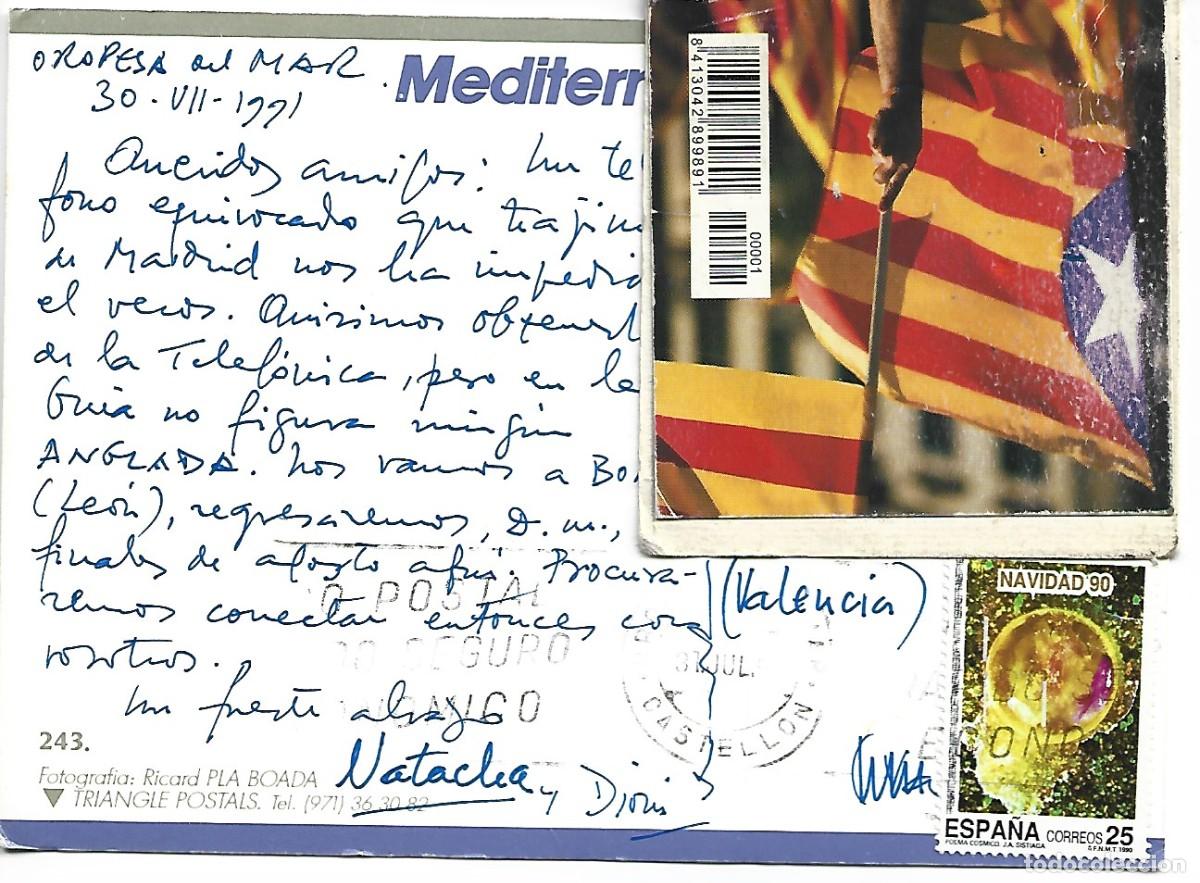 OROPESA del MAR
30-VII-1991
Mediterr
Queridos amigos: Un telé
fono equivocado que trajim
de Madrid nos ha impedid
el veros. Quisimos obtenerl
de la Telefónica, pero en la
Guía no figura ningún
ANGLADA. Nos vamos a Bo
(León), regresaremos, D.m.,
finales de agosto aquí. Procura-
remos conectar entonces con
vosotros.
Un fuerte abrazo
Natacha y Dionis
(Valencia)
O POSTAL
SEGURO
31 JUL
CASTELLON
243.
Fotografia: Ricard PLA BOADA
TRIANGLE POSTALS. Tel. (971) 36 30 82
8 413042 899891
00001
NAVIDAD 90
ESPAÑA CORREOS 25
POEMA COSMICO. J.A. SISTIAGA F.N.M.T. 1990
todocoleccion